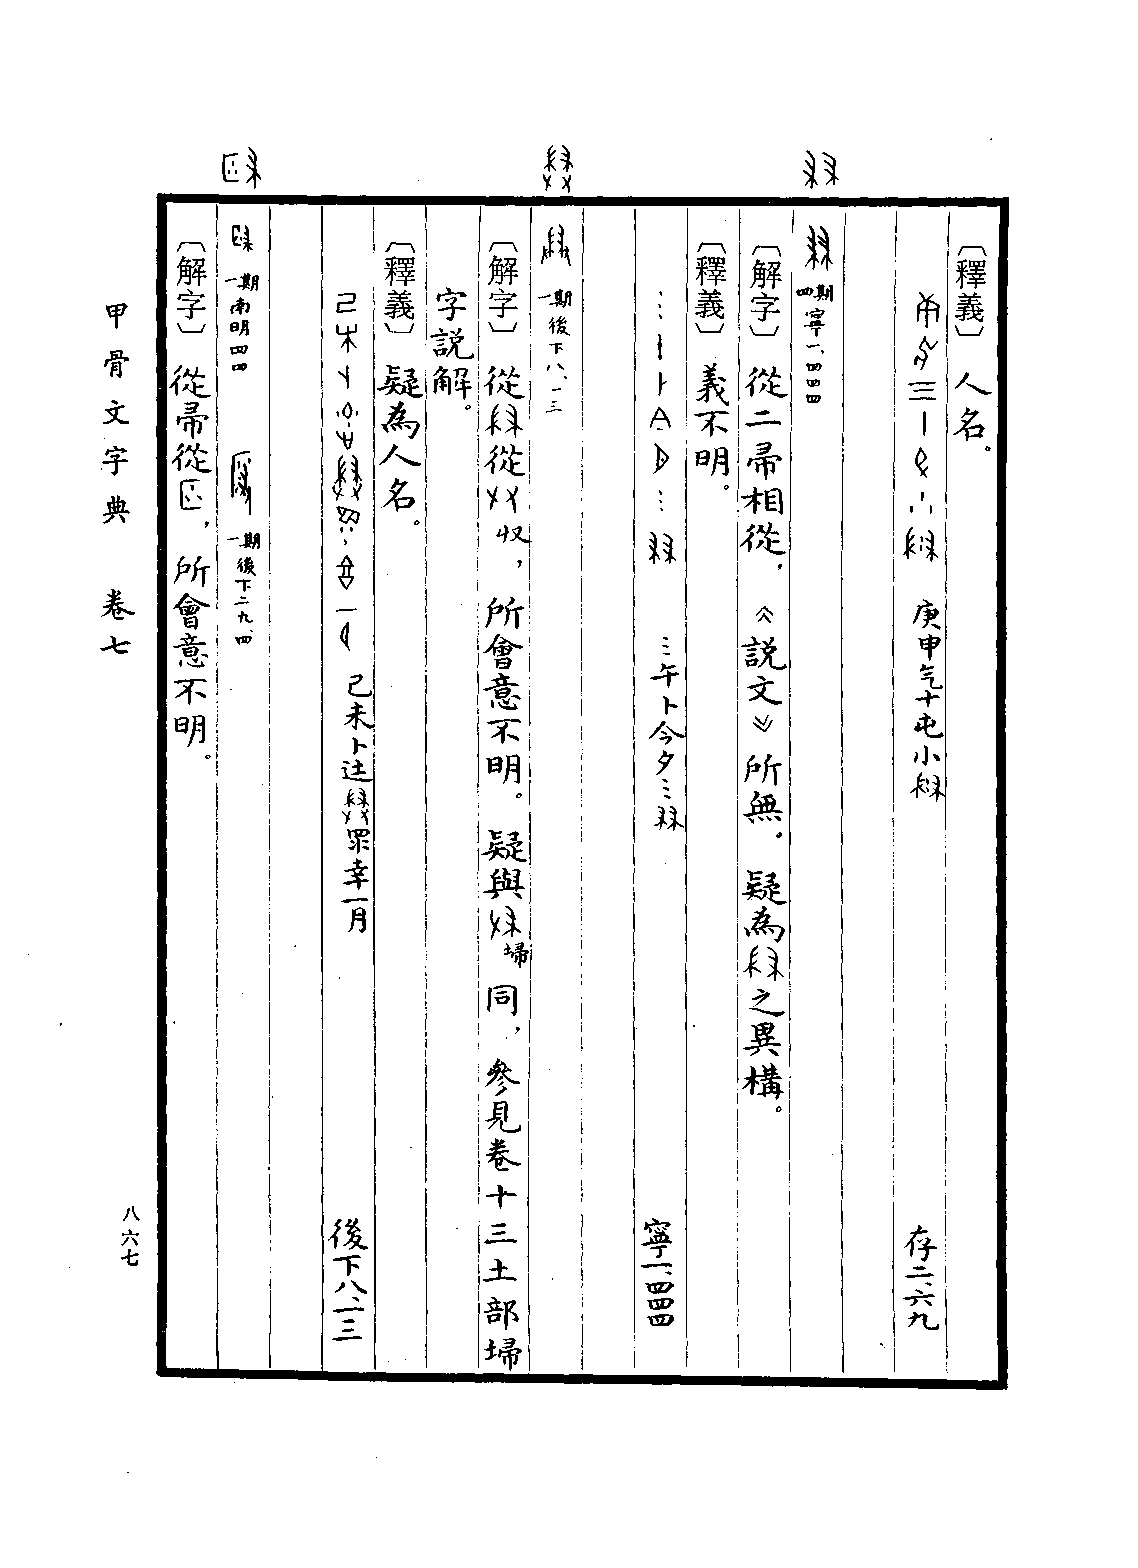 〔釋義〕人名。
庚申气十屯小
存二、六九
四期 寧一、四四四
〔解字〕從二帚相從，《説文》所無。疑為之異構。
〔釋義〕義不明。
…午卜今夕…
寧一、四四四
一期 後下八、一三
〔解字〕從從収，所會意不明。疑與埽同，參見卷十三土部埽
字説解。
〔釋義〕疑為人名。
己未卜𨑨眾幸一月
後下八、一三
一期 南明四四
一期 後下二九、四
〔解字〕從帚從，所會意不明。
甲骨文字典 卷七
八六七